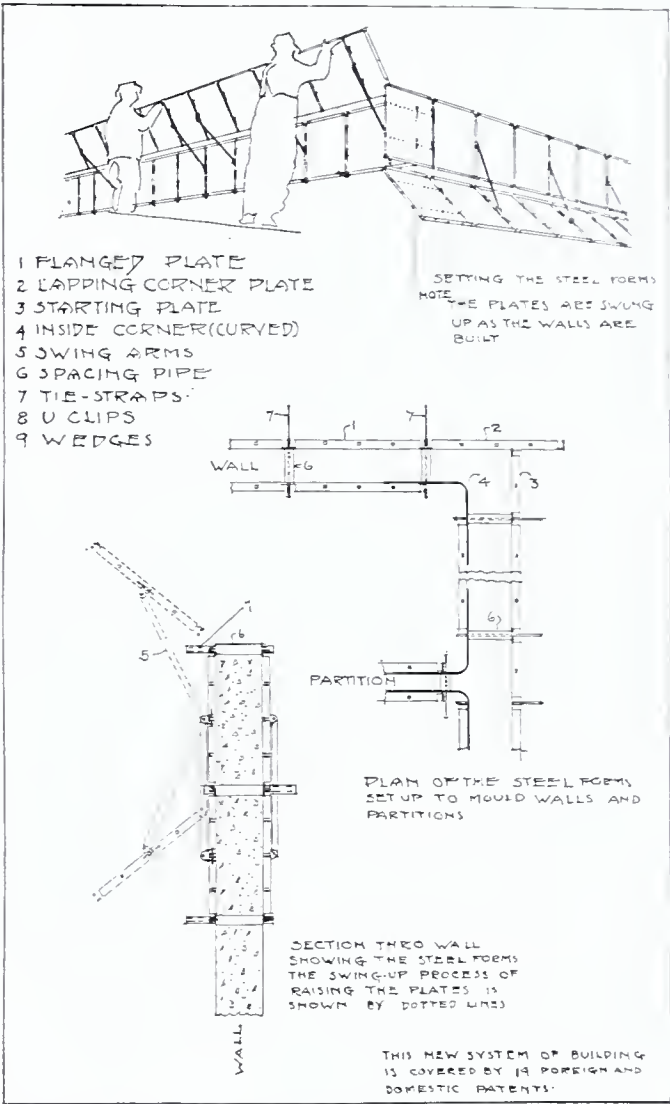 1 FLANGED PLATE
2 LAPPING CORNER PLATE
3 STARTING PLATE
4 INSIDE CORNER (CURVED)
5 SWING ARMS
6 SPACING PIPE
7 TIE-STRAPS.
8 U CLIPS
9 WEDGES
SETTING THE STEEL FORMS
NOTE
THE PLATES ARE SWUNG
UP AS THE WALLS ARE
BUILT
7 1 7 2
WALL 6
4 3
6
PARTITION
PLAN OF THE STEEL FORMS
SET UP TO MOULD WALLS AND
PARTITIONS
6
5
SECTION THRO WALL
SHOWING THE STEEL FORMS
THE SWING-UP PROCESS OF
RAISING THE PLATES IS
SHOWN BY DOTTED LINES
WALL
THIS NEW SYSTEM OF BUILDING
IS COVERED BY 14 FOREIGN AND
DOMESTIC PATENTS.